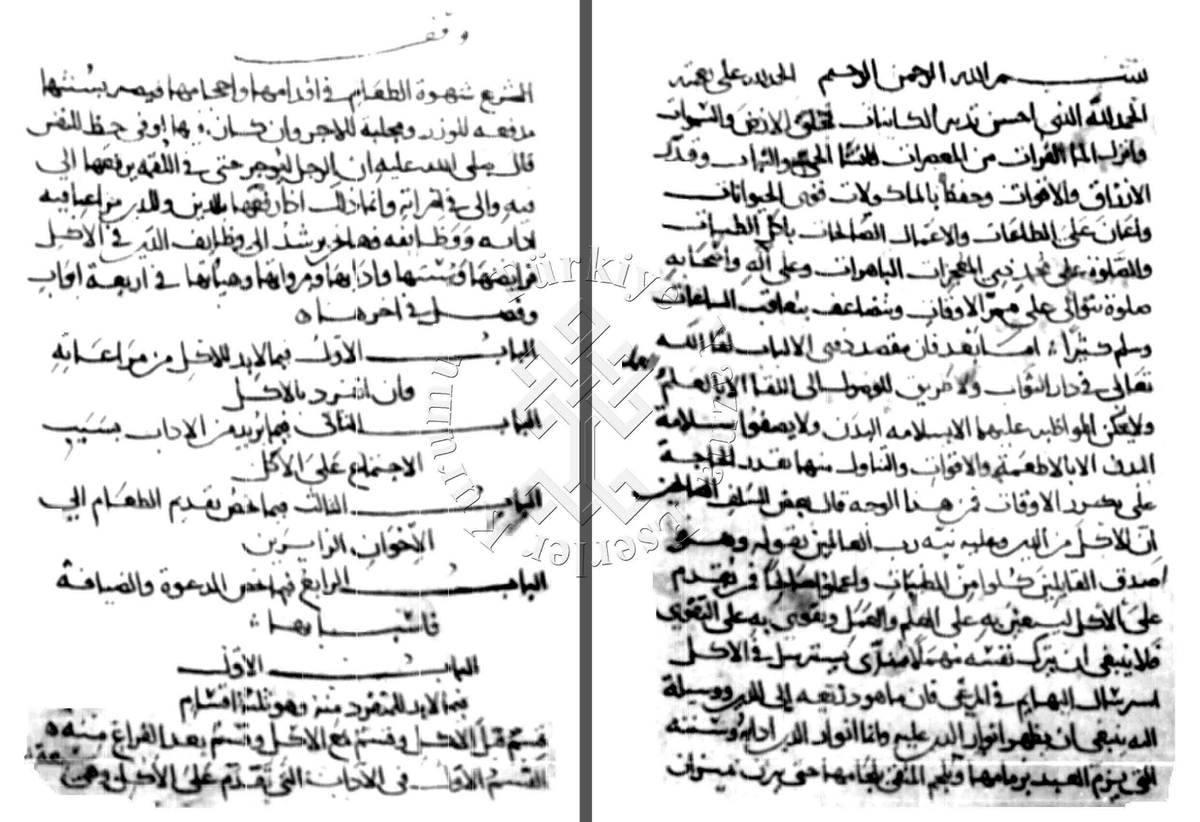 بسم الله الرحمن الرحيم الحمد لله على نعمه
الحمد لله الذي احسن تدبير الكاينات فخلق الارض والسموات
وانزل الما الفرات من المعصرات فانشا الحب والنبات وقدر
الارزاق والاقوات وحفظ بالماكولات قوى الحيوانات
واعان على الطاعات والاعمال الصالحات باكل الطيبات
والصلوة على محمد ذي المعجزات الباهرات وعلى آله واصحابه
صلوة تتوالى على ممر الاوقات وتتضاعف بتعاقب الساعات
وسلم كثيرا اما بعد فان مقصد ذوي الالباب لقا الله
تعالى في دار الثواب ولا طريق للوصول الى اللقا الا بالعلم
ولا يمكن المواظبه عليهما الا بسلامه البدن ولا يصفوا سلامة
البدن الا بالاطعمة والاقوات والتناول منها بقدر الحاجة
على تكرر الاوقات فمن هذا الوجه قال بعض السلف الصالحين
ان الاكل من الدين وعليه نبه رب العالمين بقوله وهو
اصدق القايلين كلوا من الطيبات واعملوا صالحا فمن يقدم
على الاكل ليستعين به على العلم والعمل ويقوى به على التقوى
فلا ينبغي ان يترك نفسه مهملا سدى يسترسل في الاكل
استرسال البهايم في المرعى فان ما هو ذريعه الى الدين ووسيلة
اليه ينبغي ان يظهر انوار الدين عليه وانما انوار الدين ادابه وسننه
التي يزم العبد بزمامها ويلجم المتقي بلجامها حتى يتزن بميزان
وقف
الشرع شهوة الطعام في اقدامها واحجامها فيصير بسببها
مدفعه للوزر ومجلبة للاجر وان كان فيها اوفى حظ للنفس
قال صلى الله عليه ان الرجل ليوجر حتى في اللقمه يرفعها الى
فيه والى في امراته وانما ذلك اذا رفعها بالدين وللدين مراعيا فيه
ادابه ووظايفه وها نحن نرشد الى وظايف الدين في الاكل
فرايضها وسننها وادابها ومرواتها وهياتها في اربعة ابواب
وفصل في اخرها
الباب الاول فيما لا بد للاكل من مراعاته
وان انفرد بالاكل
الباب الثاني فيما يزيد من الاداب بسبب
الاجتماع على الاكل
الباب الثالث فيما يخص تقديم الطعام الى
الاخوان الزايرين
الباب الرابع فيما يخص الدعوة والضيافة
واسبابها
الباب الاول
فيما لا بد للمنفرد منه وهو ثلثة اقسام
قسم قبل الاكل وقسم مع الاكل وقسم بعد الفراغ منه
القسم الاول في الاداب التي تتقدم على الاكل وهي
Türkiye Yazma Eserler Kurumu